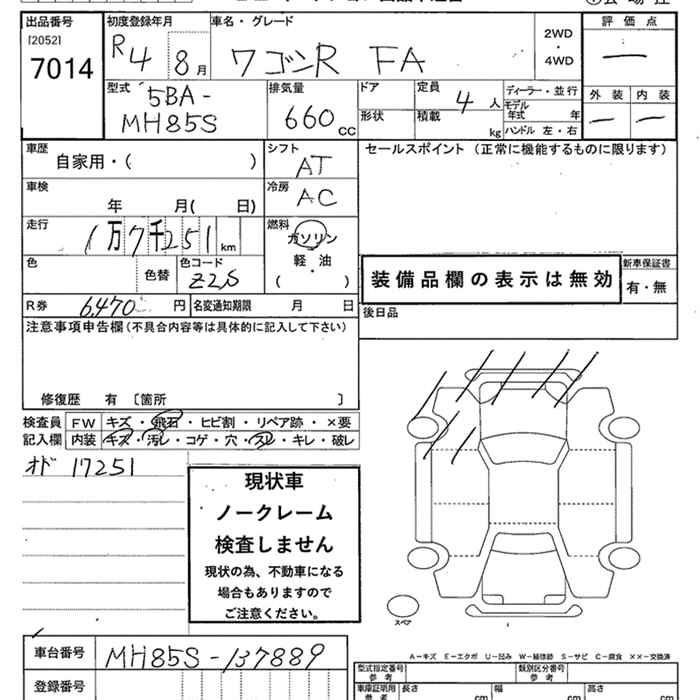 出品番号 初度登録年月 車名・グレード 評価点
[2052]
7014
R4 8月 ワゴンR FA
2WD
・
4WD
—
型式 排気量 ドア 定員 ディーラー・並行 外装 内装
5BA-
MH85S
660cc 4人
モデル年式 年
形状 積載 kg ハンドル 左・右
— —
車歴 シフト セールスポイント (正常に機能するものに限ります)
自家用・( ) AT
車検 冷房
年 月( 日) AC
走行 燃料
1万7千251km ガソリン
軽・油
( )
色 色替 色コード
Z2S
装備品欄の表示は無効
新車保証書
有・無
R券 6,470円 名変通知期限 月 日 後日品
注意事項申告欄(不具合内容等は具体的に記入して下さい)
修復歴 有 〔箇所 〕
検査員 FW キズ・飛石・ヒビ割・リペア跡・×要
記入欄 内装 キズ・汚レ・コゲ・穴・スレ・キレ・破レ
オド 17251
現状車
ノークレーム
検査しません
現状の為、不動車になる
場合もありますので
ご注意ください。
スペア
A－キズ E－エクボ U－凹み W－補修跡 S－サビ C－腐食 ××－交換済
車台番号 MH85S-137889
登録番号
型式指定番号 参考 類別区分番号 参考
車庫証明用 参考 長さ cm 幅 cm 高さ cm